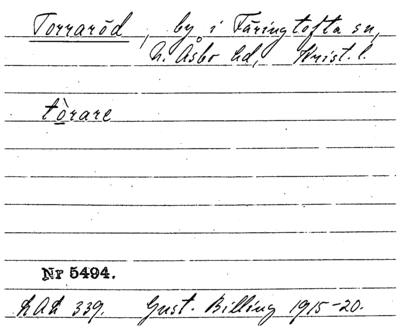 Torraröd, by i Färingtofta sn,
N. Åsbo hd, Krist. l.
tòrare
Nr 5494.
LAL 339. Gust. Billing 1915-20.